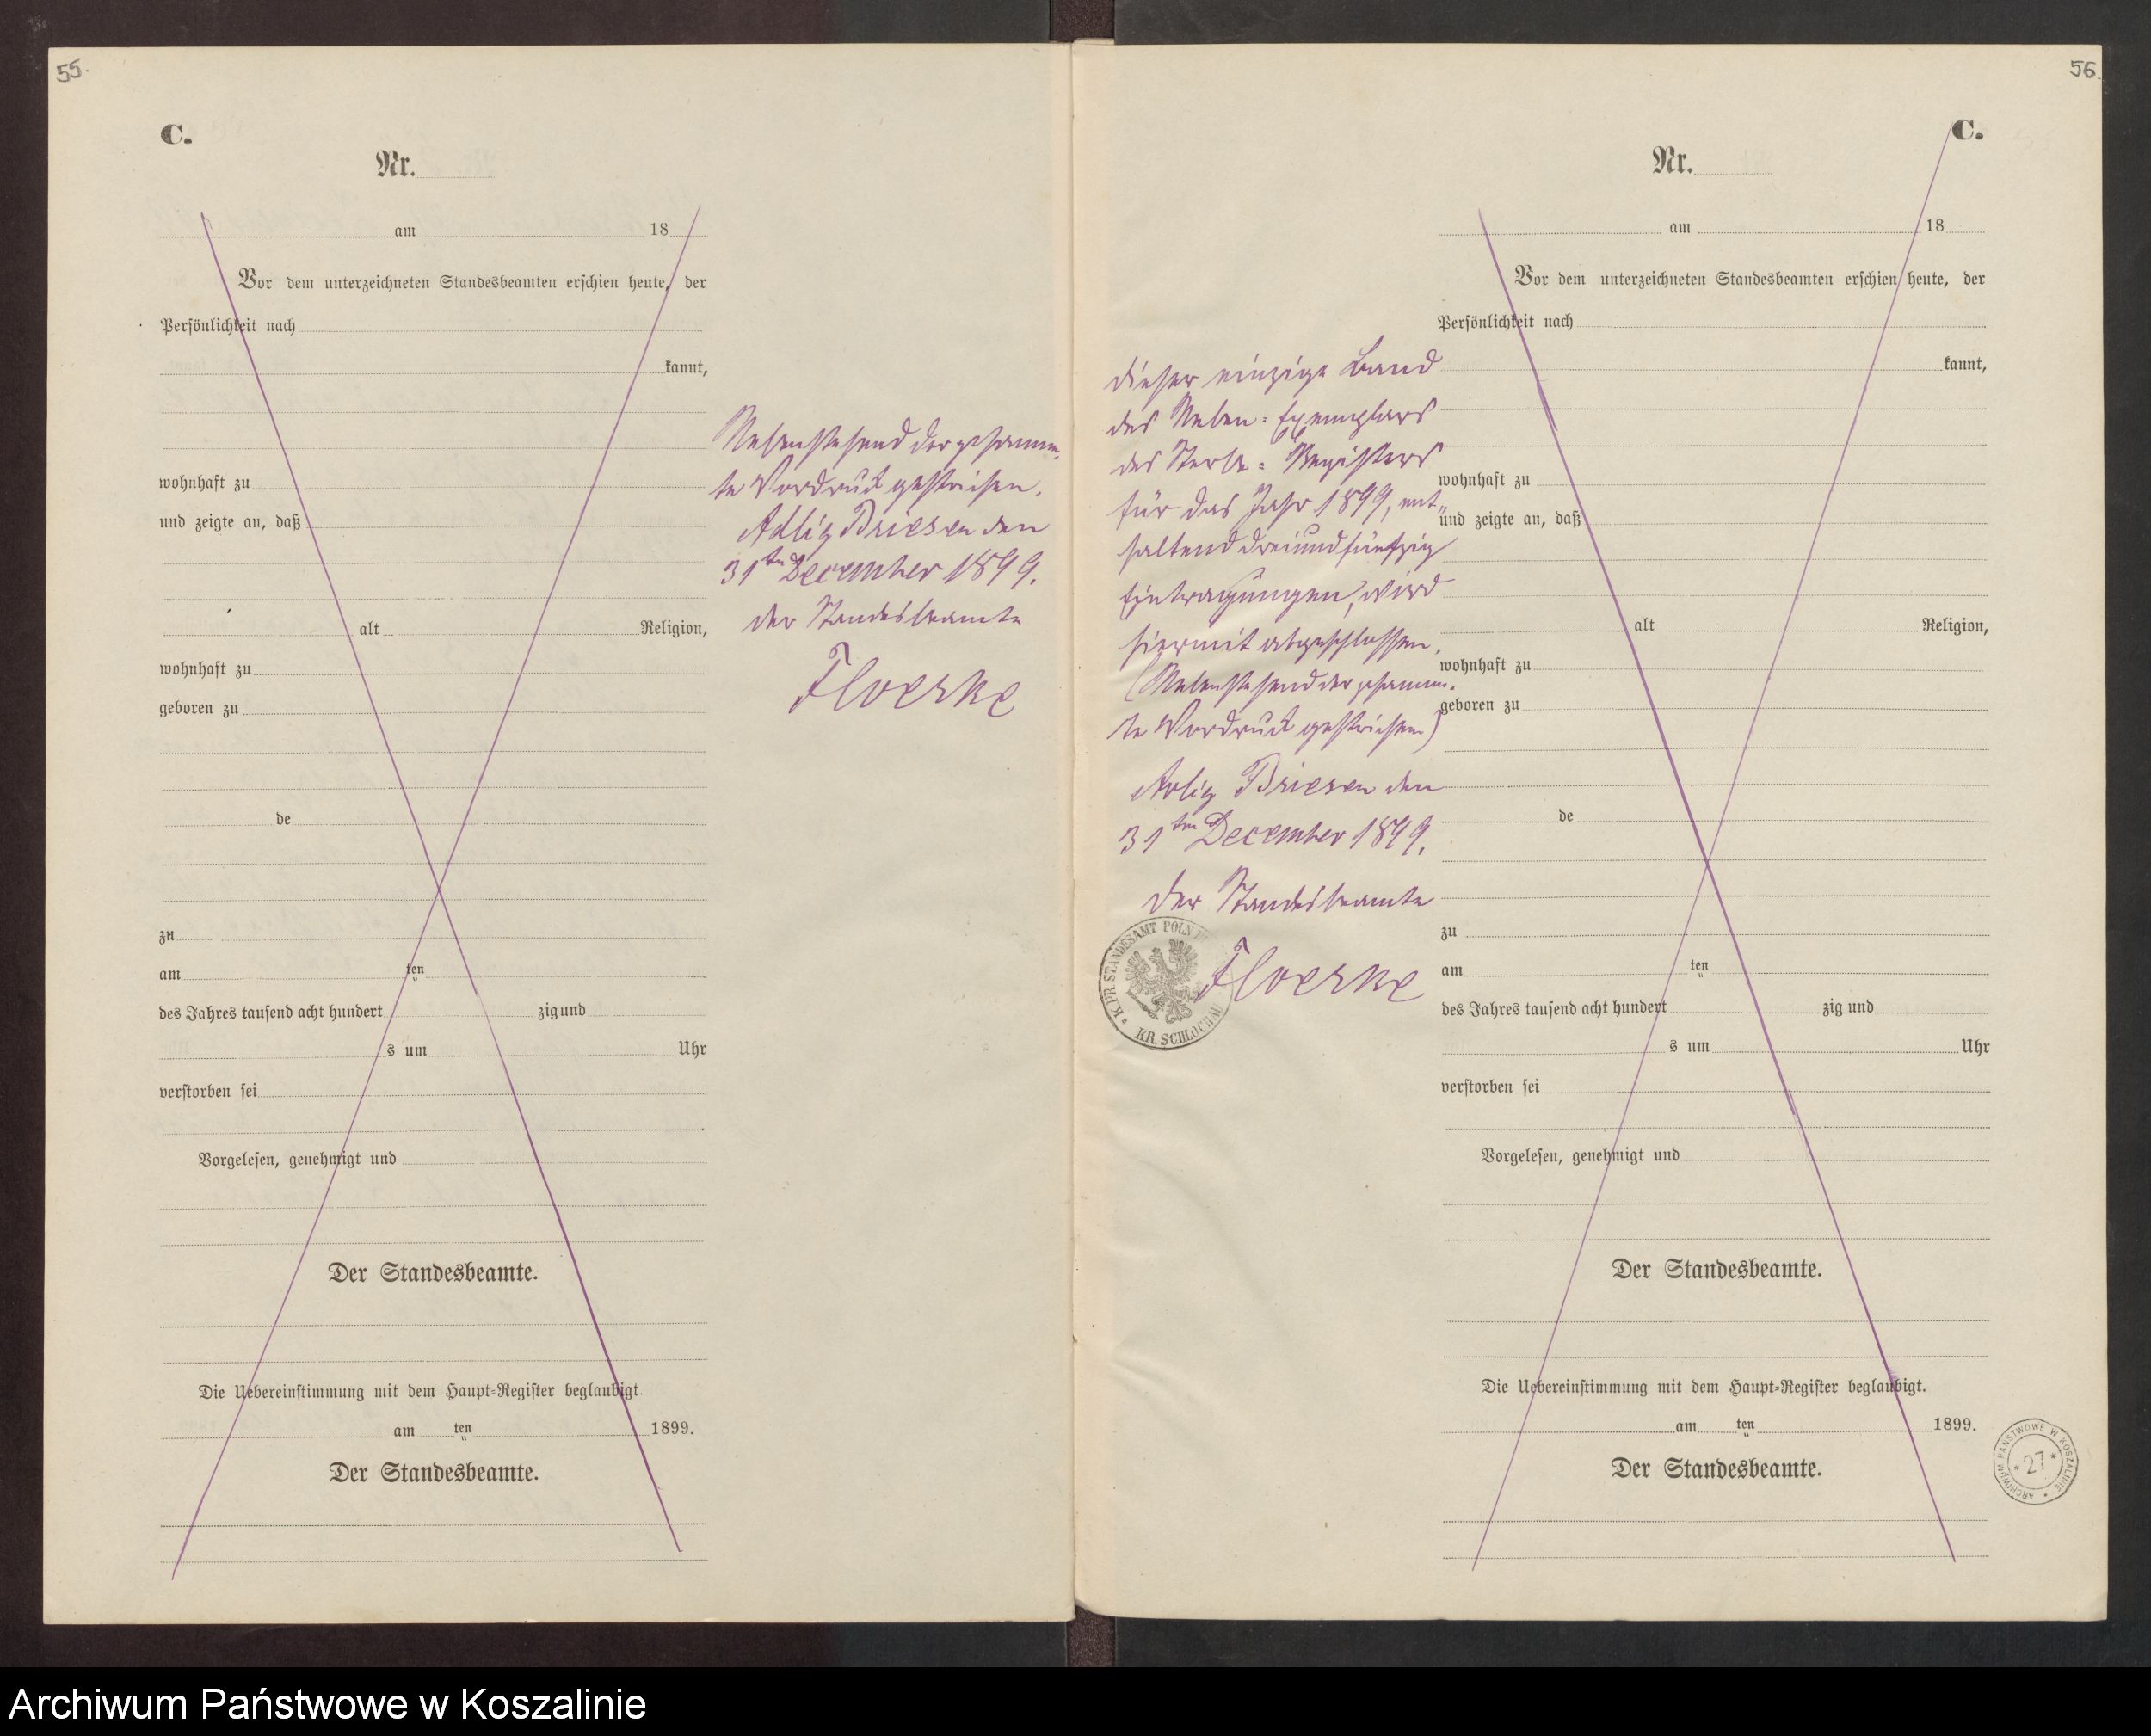 55.
C.
Nr.
am 18
Vor dem unterzeichneten Standesbeamten erschien heute, der
Persönlichkeit nach
kannt,
wohnhaft zu
und zeigte an, daß
alt Religion,
wohnhaft zu
geboren zu
de
zu
am ten
des Jahres tausend acht hundert zig und
s um Uhr
verstorben sei
Vorgelesen, genehmigt und
Der Standesbeamte.
Die Uebereinstimmung mit dem Haupt-Register beglaubigt.
am ten 1899.
Der Standesbeamte.
Nebenstehend der gesamm-
te Vordruck gestrichen.
Adlig Briesen den
31ten December 1899.
der Standesbeamte
Floerke
56
C.
Nr.
am 18
Vor dem unterzeichneten Standesbeamten erschien heute, der
Persönlichkeit nach
kannt,
wohnhaft zu
und zeigte an, daß
alt Religion,
wohnhaft zu
geboren zu
de
zu
am ten
des Jahres tausend acht hundert zig und
s um Uhr
verstorben sei
Vorgelesen, genehmigt und
Der Standesbeamte.
Die Uebereinstimmung mit dem Haupt-Register beglaubigt.
am ten 1899.
Der Standesbeamte.
dieser einzige Band
des Neben-Exemplars
des Sterbe-Registers
für das Jahr 1899, ent-
haltend dreiundfünfzig
Eintragungen, wird
hiermit abgeschlossen.
(Nebenstehend der gesamm-
te Vordruck gestrichen)
Adlig Briesen den
31ten December 1899.
der Standesbeamte
Floerke
K. PR. STANDESAMT POLN.
KR. SCHLOCHAU
ARCHIWUM PAŃSTWOWE W KOSZALINIE
* 27 *
Archiwum Państwowe w Koszalinie